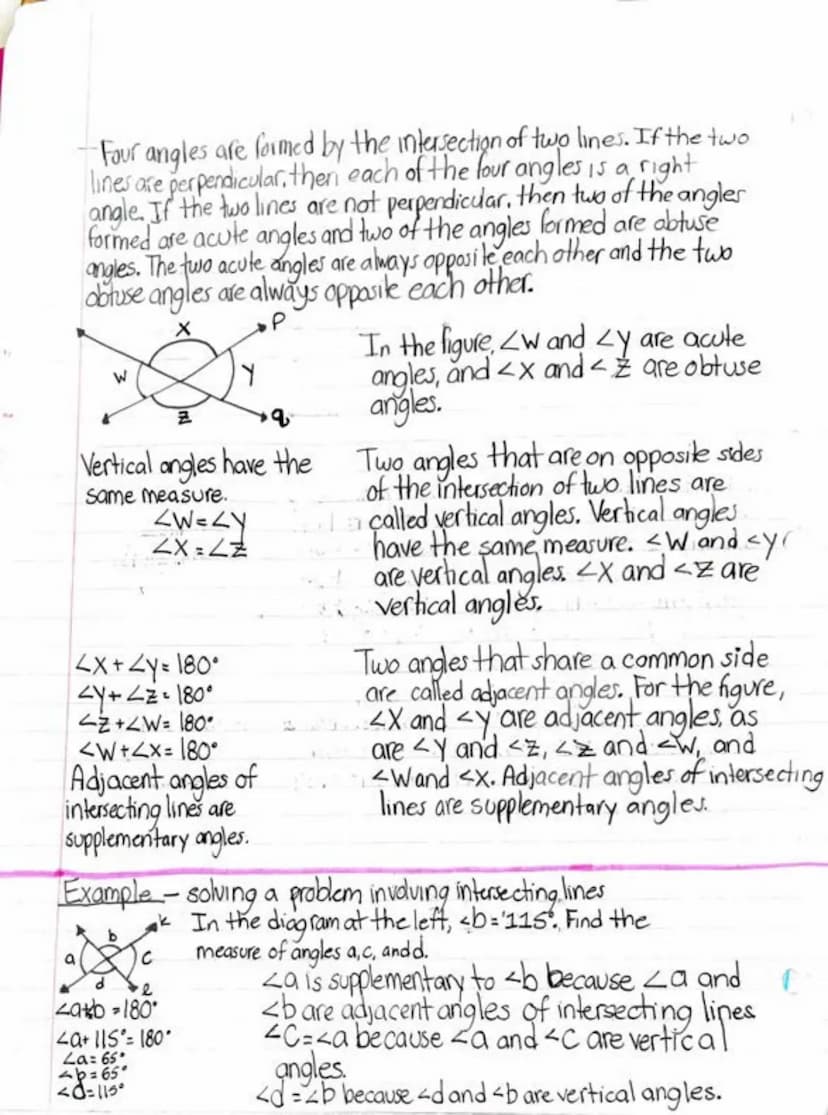 Four angles are formed by the intersection of two lines. If the two
lines are perpendicular, then each of the four angles is a right
angle. If the two lines are not perpendicular, then two of the angles
formed are acute angles and two of the angles formed are obtuse
angles. The two acute angles are always opposite each other and the two
obtuse angles are always opposite each other.
X
P
W
Y
Z
q
In the figure, ∠W and ∠Y are acute
angles, and ∠X and ∠Z are obtuse
angles.
Vertical angles have the
same measure.
∠W=∠Y
∠X=∠Z
Two angles that are on opposite sides
of the intersection of two lines are
called vertical angles. Vertical angles
have the same measure. ∠W and ∠y
are vertical angles. ∠X and ∠Z are
vertical angles.
∠X+∠Y=180°
∠Y+∠Z=180°
∠Z+∠W=180°
∠W+∠X=180°
Adjacent angles of
intersecting lines are
supplementary angles.
Two angles that share a common side
are called adjacent angles. For the figure,
∠X and ∠Y are adjacent angles, as
are ∠Y and ∠Z, ∠Z and ∠W, and
∠W and ∠X. Adjacent angles of intersecting
lines are supplementary angles.
Example - solving a problem involving intersecting lines
In the diagram at the left, ∠b=115°. Find the
measure of angles a, c, and d.
b
k
a
c
d
l
∠a+b=180°
∠a+115°=180°
∠a=65°
∠b=65°
∠d=115°
∠a is supplementary to ∠b because ∠a and
∠b are adjacent angles of intersecting lines
∠C=∠a because ∠a and ∠C are vertical
angles.
∠d=∠b because ∠d and ∠b are vertical angles.